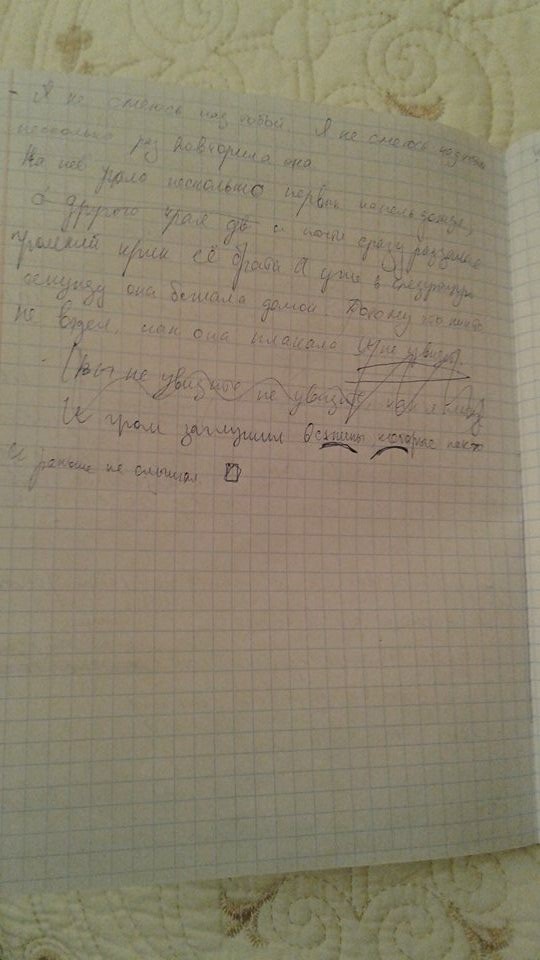 - Я не смеюсь над тобой. Я не смеюсь над тобой
несколько раз повторила она
На неё упало несколько первых капель дождя,
с другого края дв и почти сразу раздался
громкий крик её брата А уже в следующую
секунду она бежала домой. Потому что никто
не видел, как она плакала (И не увидит).
- (Вы не увидите не увидите, как я плачу
И гром заглушил всхлипы которые никто
и раньше не слышал